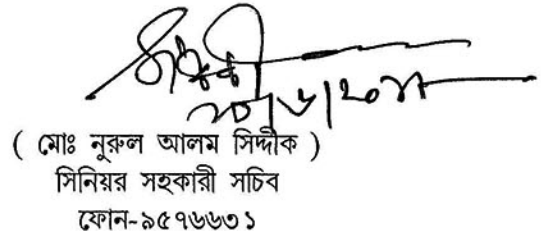 ( মোঃ নুরুল আলম সিদ্দীক )
সিনিয়র সহকারী সচিব
ফোন-৯৫৭৬৬৩১